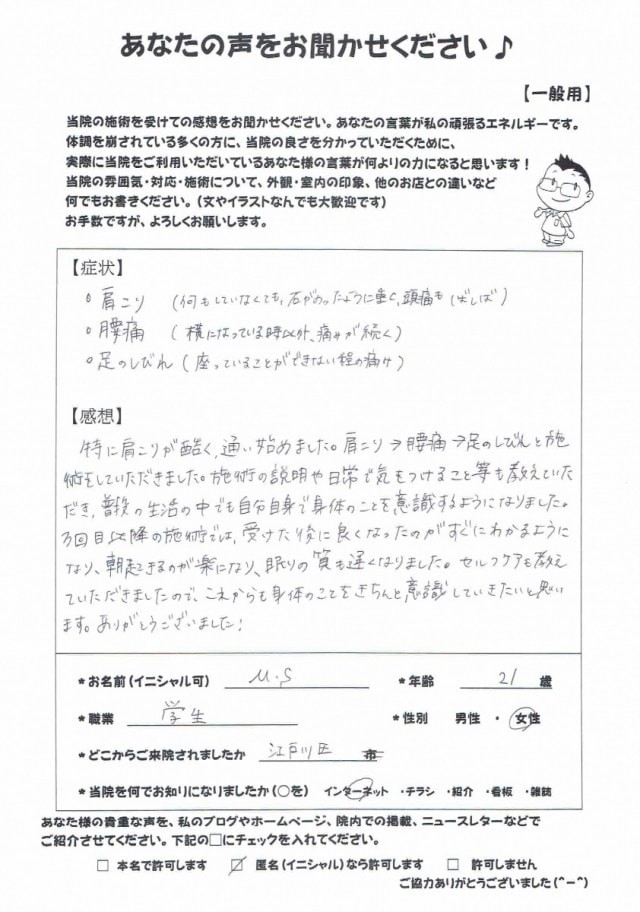 あなたの声をお聞かせください♪
【一般用】
当院の施術を受けての感想をお聞かせください。あなたの言葉が私の頑張るエネルギーです。
体調を崩されている多くの方に、当院の良さを分かっていただくために、
実際に当院をご利用いただいているあなた様の言葉が何よりの力になると思います！
当院の雰囲気・対応・施術について、外観・室内の印象、他のお店との違いなど
何でもお書きください。（文やイラストなんでも大歓迎です）
お手数ですが、よろしくお願いします。
【症状】
。肩こり （何もしていなくても、石がのったように重く、頭痛もしばしば）
。腰痛 （横になっている時以外、痛みが続く）
。足のしびれ（座っていることができない程の痛み）
【感想】
特に肩こりが酷く、通い始めました。肩こり→腰痛→足のしびれと施
術をしていただきました。施術の説明や日常で気をつけること等も教えていた
だき、普段の生活の中でも自分自身で身体のことを意識するようになりました。
3回目以降の施術では、受けた後に良くなったのがすぐにわかるように
なり、朝起きるのが楽になり、眠りの質も良くなりました。セルフケアも教え
ていただきましたので、これからも身体のことをきちんと意識していきたいと思い
ます。ありがとうございました!
*お名前（イニシャル可） M.S *年齢 21 歳
*職業 学生 *性別 男性 ・ 女性
*どこからご来院されましたか 江戸川区 市
*当院を何でお知りになりましたか（○を） インターネット ・チラシ ・紹介 ・看板 ・雑誌
あなた様の貴重な声を、私のブログやホームページ、院内での掲載、ニュースレターなどで
ご紹介させてください。下記の□にチェックを入れてください。
□ 本名で許可します ☑ 匿名（イニシャル）なら許可します □ 許可しません
ご協力ありがとうございました（^－^）